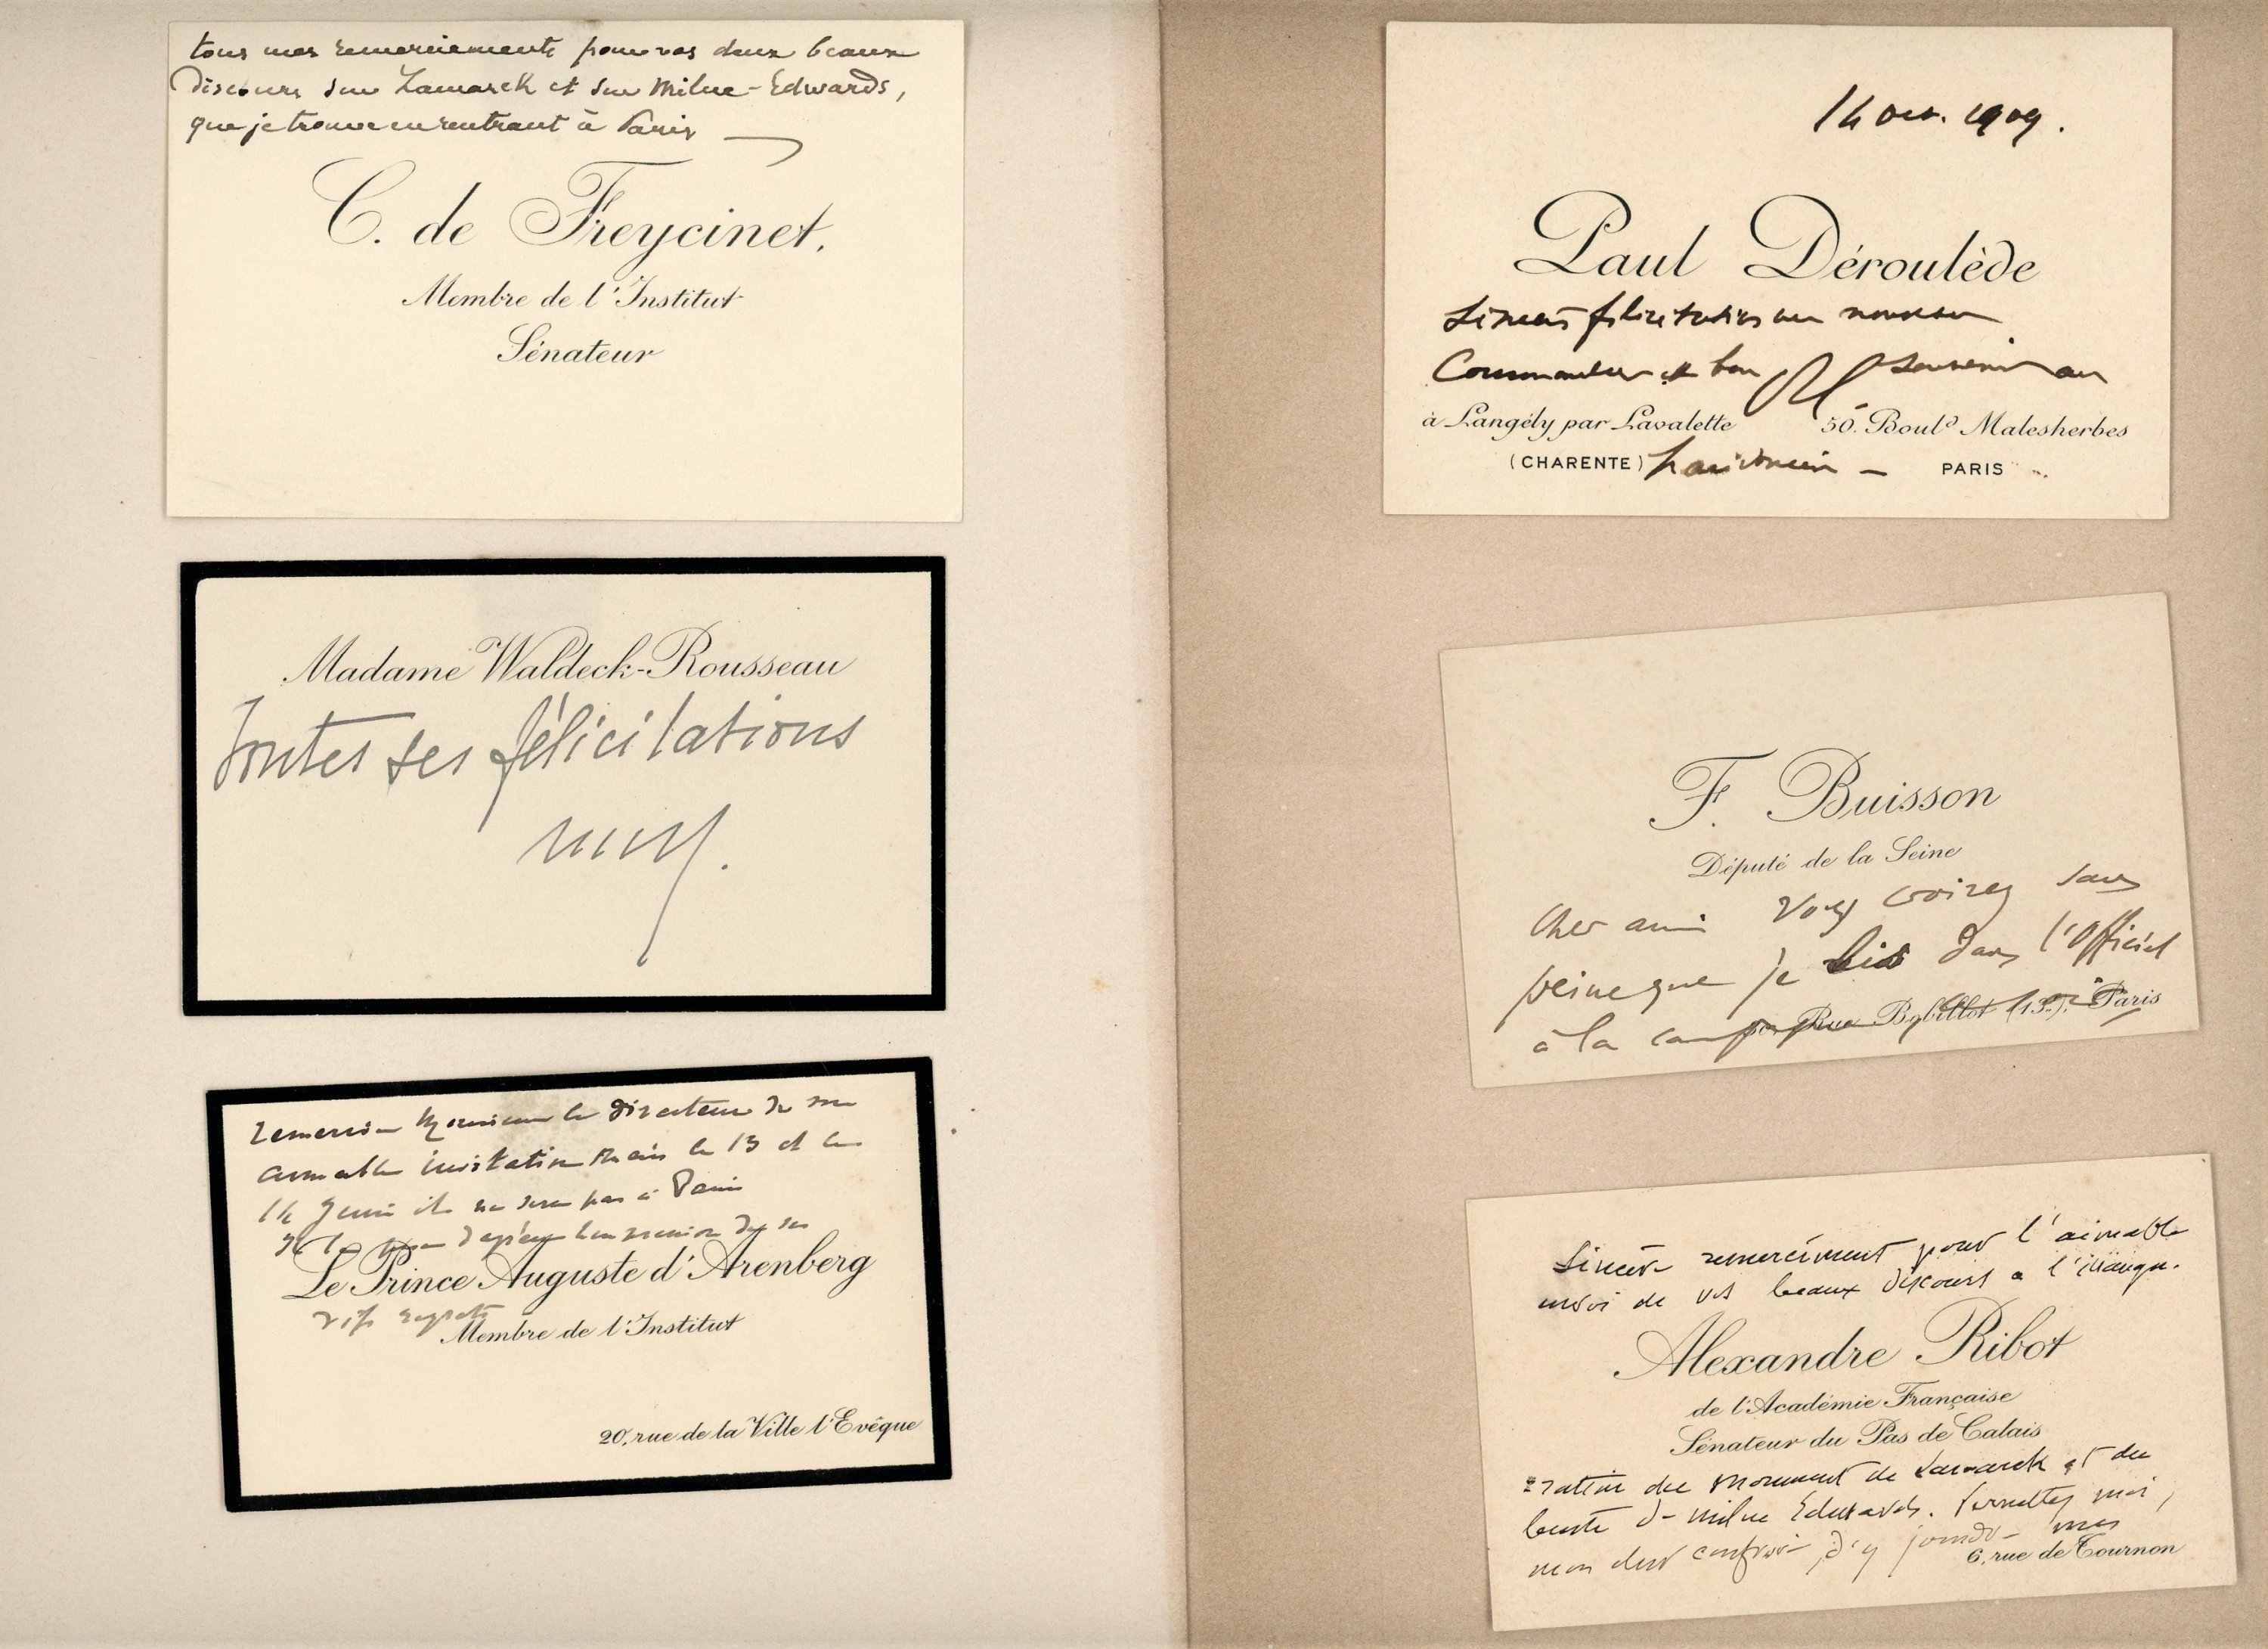 tous mes remerciements pour vos deux beaux
Discours sur Lamarck et sur Milne-Edwards,
que je trouve en rentrant à Paris
C. de Freycinet.
Membre de l'Institut
Sénateur
Madame Waldeck-Rousseau
Toutes ses félicitations
Le Prince Auguste d'Arenberg
remercie Monsieur le directeur de son
aimable invitation mais le 13 et le
14 Juin il ne sera pas à Paris
vifs regrets
Membre de l'Institut
20, rue de la Ville l'Evêque
14 1909.
Paul Déroulède
Sincères félicitations au nouveau
Commandeur et bon souvenir au
à Langély par Lavalette
50. Boul.d Malesherbes
(CHARENTE)
PARIS
F. Buisson
Député de la Seine
Cher ami Vous croirez sans
peine que je lis dans l'Officiel
à la campagne
Rue Bobillot (13e). Paris
Sincère remerciment pour l'aimable
envoi de vos beaux discours a l'inaugu-
Alexandre Ribot
de l'Académie Française
Sénateur du Pas de Calais
ration du monument de Lamarck et du
buste de Milne Edwards. Permettez moi,
mon cher confrère, d'y joindre mes
6, rue de Tournon